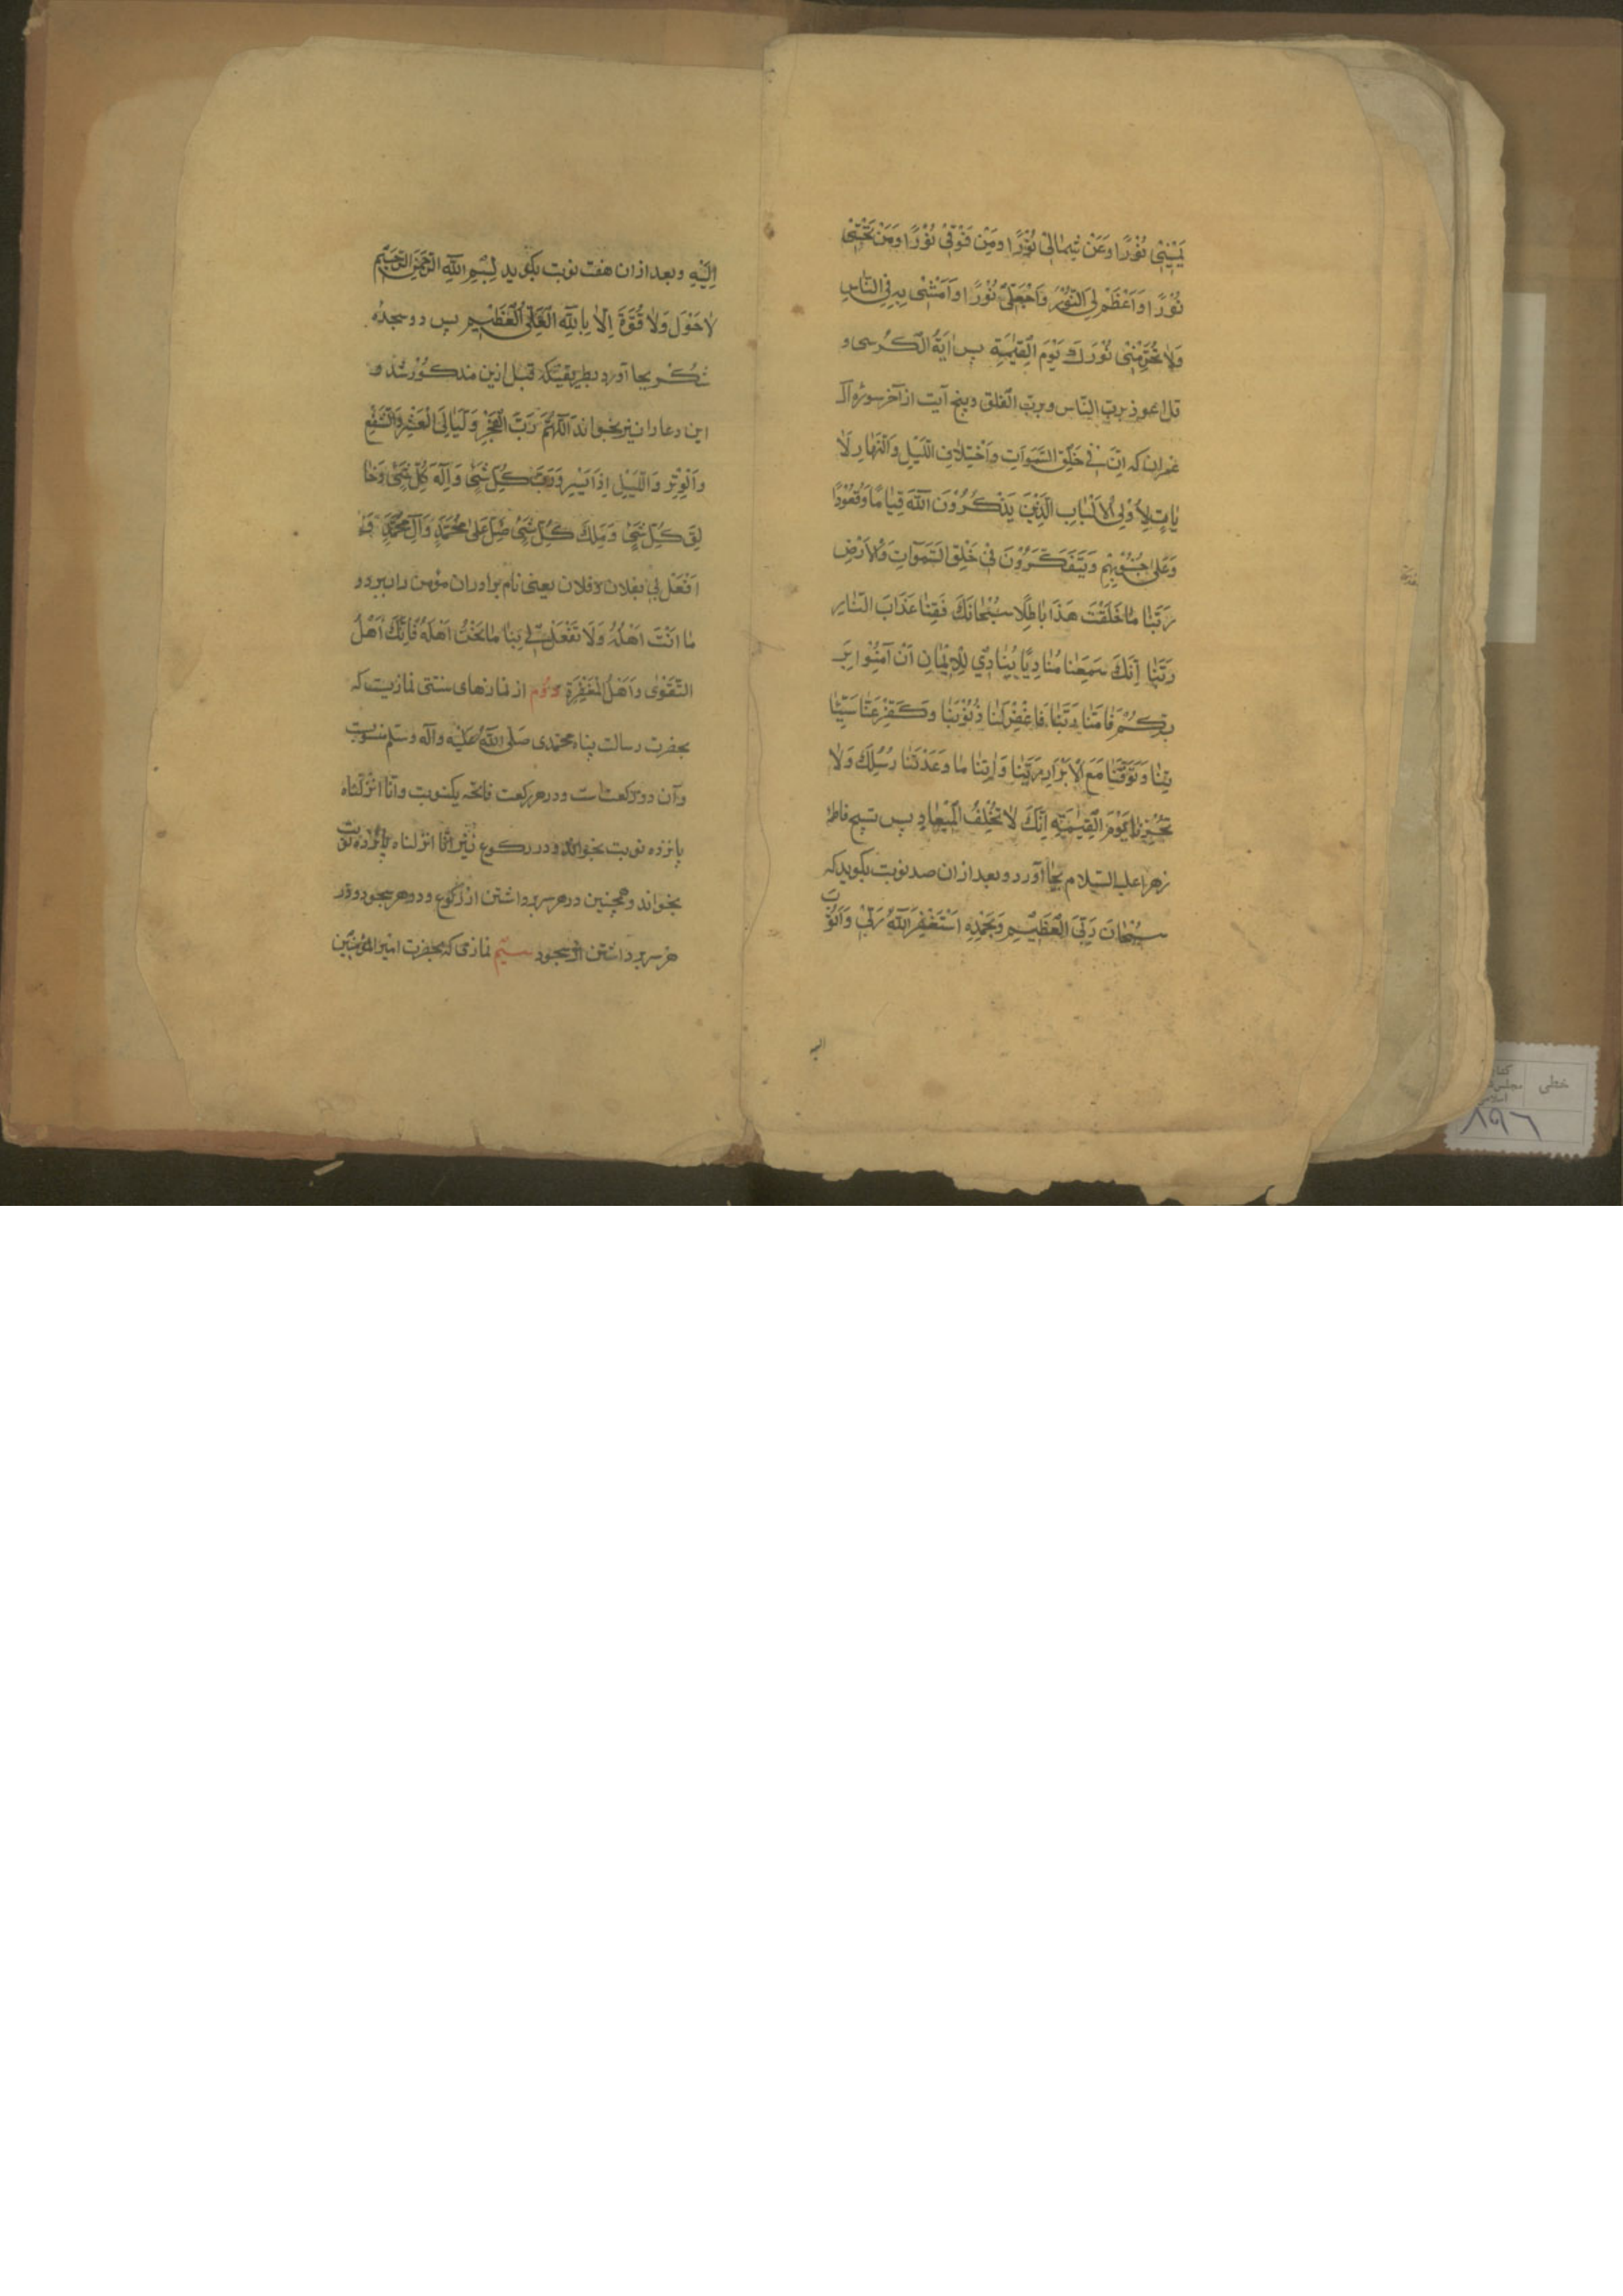 یَمیٖنیٖ نُوْرًا وَعَنْ شِمٰالیٖ نُوْرًا ومِنْ فَوْقیٖ نُوْرًا وَمَنْ تَحْتیٖ
نُوْرًا وَاَعْظَمْ لِیَ النُّوْرَ وَاجْعَلْ لیٖ نُوْرًا وَاَمْشیٖ بِهِ فِی النّٰاسِ
وَلاٰ تُحَرِّمْنیٖ نُوْرَكَ یَوْمَ القِیٰمَةِ پس اٰیَةُ الکُرسی و
قل اعوذ بربّ النّاس و بربّ الفلق و پنج آیت از آخر سوره آل
عمران که اِنَّ فیٖ خَلْقِ السَّمٰوَاتِ وَاخْتِلاٰفِ اللَّیْلِ وَالنَّهٰارِ لَاٰ
یٰاتٍ لِاُوْلِی الْاَلْبٰابِ الَّذیٖنَ یَذْکُرُوْنَ اللّٰهَ قِیٰامًا وَقُعُوْدًا
وَعَلیٰ جُنُوْبِهِمْ وَیَتَفَکَّرُوْنَ فیٖ خَلْقِ السَّمٰوَاتِ وَالْاَرْضِ
رَبَّنٰا مٰا خَلَقْتَ هَذَا بٰاطِلًا سُبْحٰانَكَ فَقِنٰا عَذٰابَ النّٰارِ
رَبَّنٰا اِنَّكَ سَمِعْنٰا مُنٰادِیًا یُنٰادیٖ لِلْاِیْمٰانِ اَنْ آمَنُوْا بِرَ
بِّکُمْ فَاٰمَنّٰا رَبَّنٰا فَاغْفِرْلَنٰا ذُنُوْبَنٰا وکَفِّرْ عَنّٰا سَیِّئٰا
تِنٰا وَتَوَفَّنٰا مَعَ الْاَبْرٰارِ رَبَّنٰا وَاٰتِنٰا مٰا وَعَدْتَنٰا رُسُلِكَ وَلاٰ
تُخْزِنٰا یَوْمَ القِیٰمَةِ اِنَّكَ لاٰ تُخْلِفُ الْمیٖعٰادِ پس تسبیح فاطمه
زهرا علیه السّلام بجٰا آورد و بعد از ان صد نوبت بگوید که
سُبْحٰانَ رَبِّیَ الْعَظیٖمِ وَبِحَمْدِهِ اَسْتَغْفِرُ اللّٰهَ رَبّیٖ وَاَتُوْبُ
الیه
اِلَیْهِ و بعد از ان هفت نوبت بگوید بِسْمِ اللّٰهِ الرَّحْمٰنِ الرَّحیٖمِ
لاٰ حَوْلَ وَلاٰ قُوَّةَ اِلّاٰ بِاللّٰهِ الْعَلِیِّ الْعَظیٖمِ پس دو سجدهٔ
شکر بجا آورد بطریقیکه قبل ازین مذکور شد و
این دعا را نیز بخواند اَللّٰهُمَّ رَبَّ الْفَجْرِ وَلَیٰالِیَ الْعَشْرِ وَالشَّفْعِ
وَالْوِتْرِ وَاللَّیْلِ اِذَا یَسْرِ وَرَبَّ کُلِّ شَیْئٍ وَاِلٰهَ کُلِّ شَیْئٍ وَخٰا
لِقَ کُلِّ شَیْئٍ وَمَلِكَ کُلِّ شَیْئٍ صَلِّ عَلیٰ مُحَمَّدٍ وَآلِ مُحَمَّدٍ وَ
افْعَلْ بیٖ بفلان و فلان یعنی نام برادران مؤمن را ببرد و
مٰا اَنْتَ اَهْلُهُ وَلَا تَفْعَلْ بِنٰا مٰا نَحْنُ اَهْلَهُ فَاِنَّكَ اَهْلُ
التَّقْوٰی وَاَهْلُ الْمَغْفِرَةِ دوّم از نمازهای سنتی نمازیست که
بحضرت رسالت پناه محمّدی صَلَّی اللّٰهُ عَلَیْهِ وآله وسَلّم منسوبست
و آن دو رکعتست و در هر رکعت فاتحه یکنوبت و انّا انزلناه
پانزده نوبت بخواند و در رکوع نیز انّا انزلناه پانزده نوبت
بخواند و همچنین در هر سر برداشتن از رکوع و در هر سجود و در
هر سر برداشتن از سجود سیّم نمازی که بحضرت امیر المؤمنین
خطی
۸۹۶